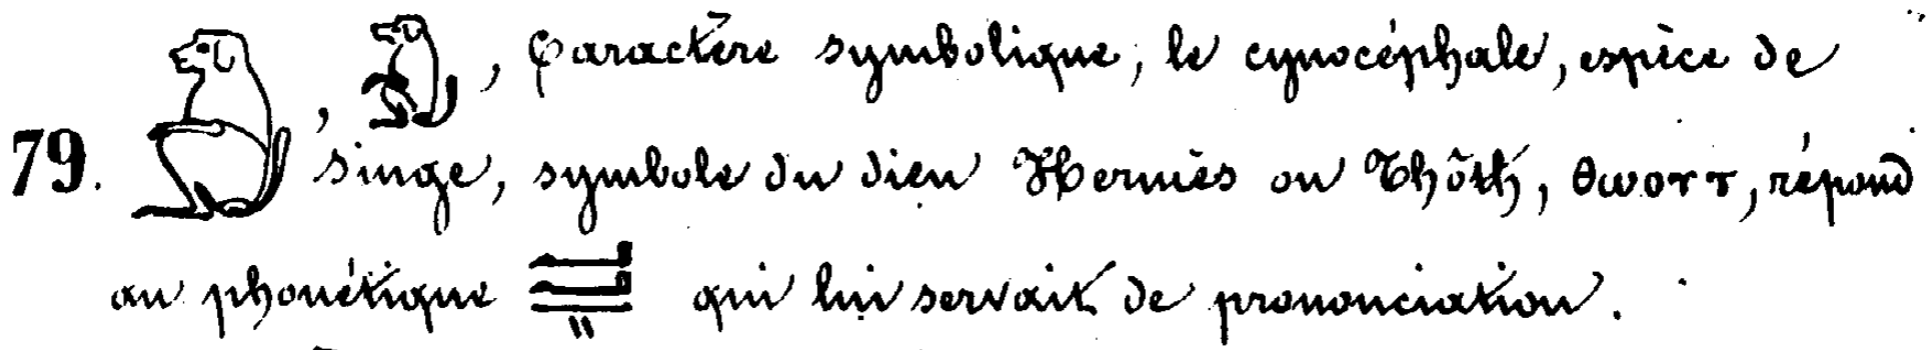 , , Caractère symbolique, le cynocéphale, espèce de
79. singe, symbole du dieu Hermès ou Thôth, θωοττ, répond
au phonétique qui lui servait de prononciation.